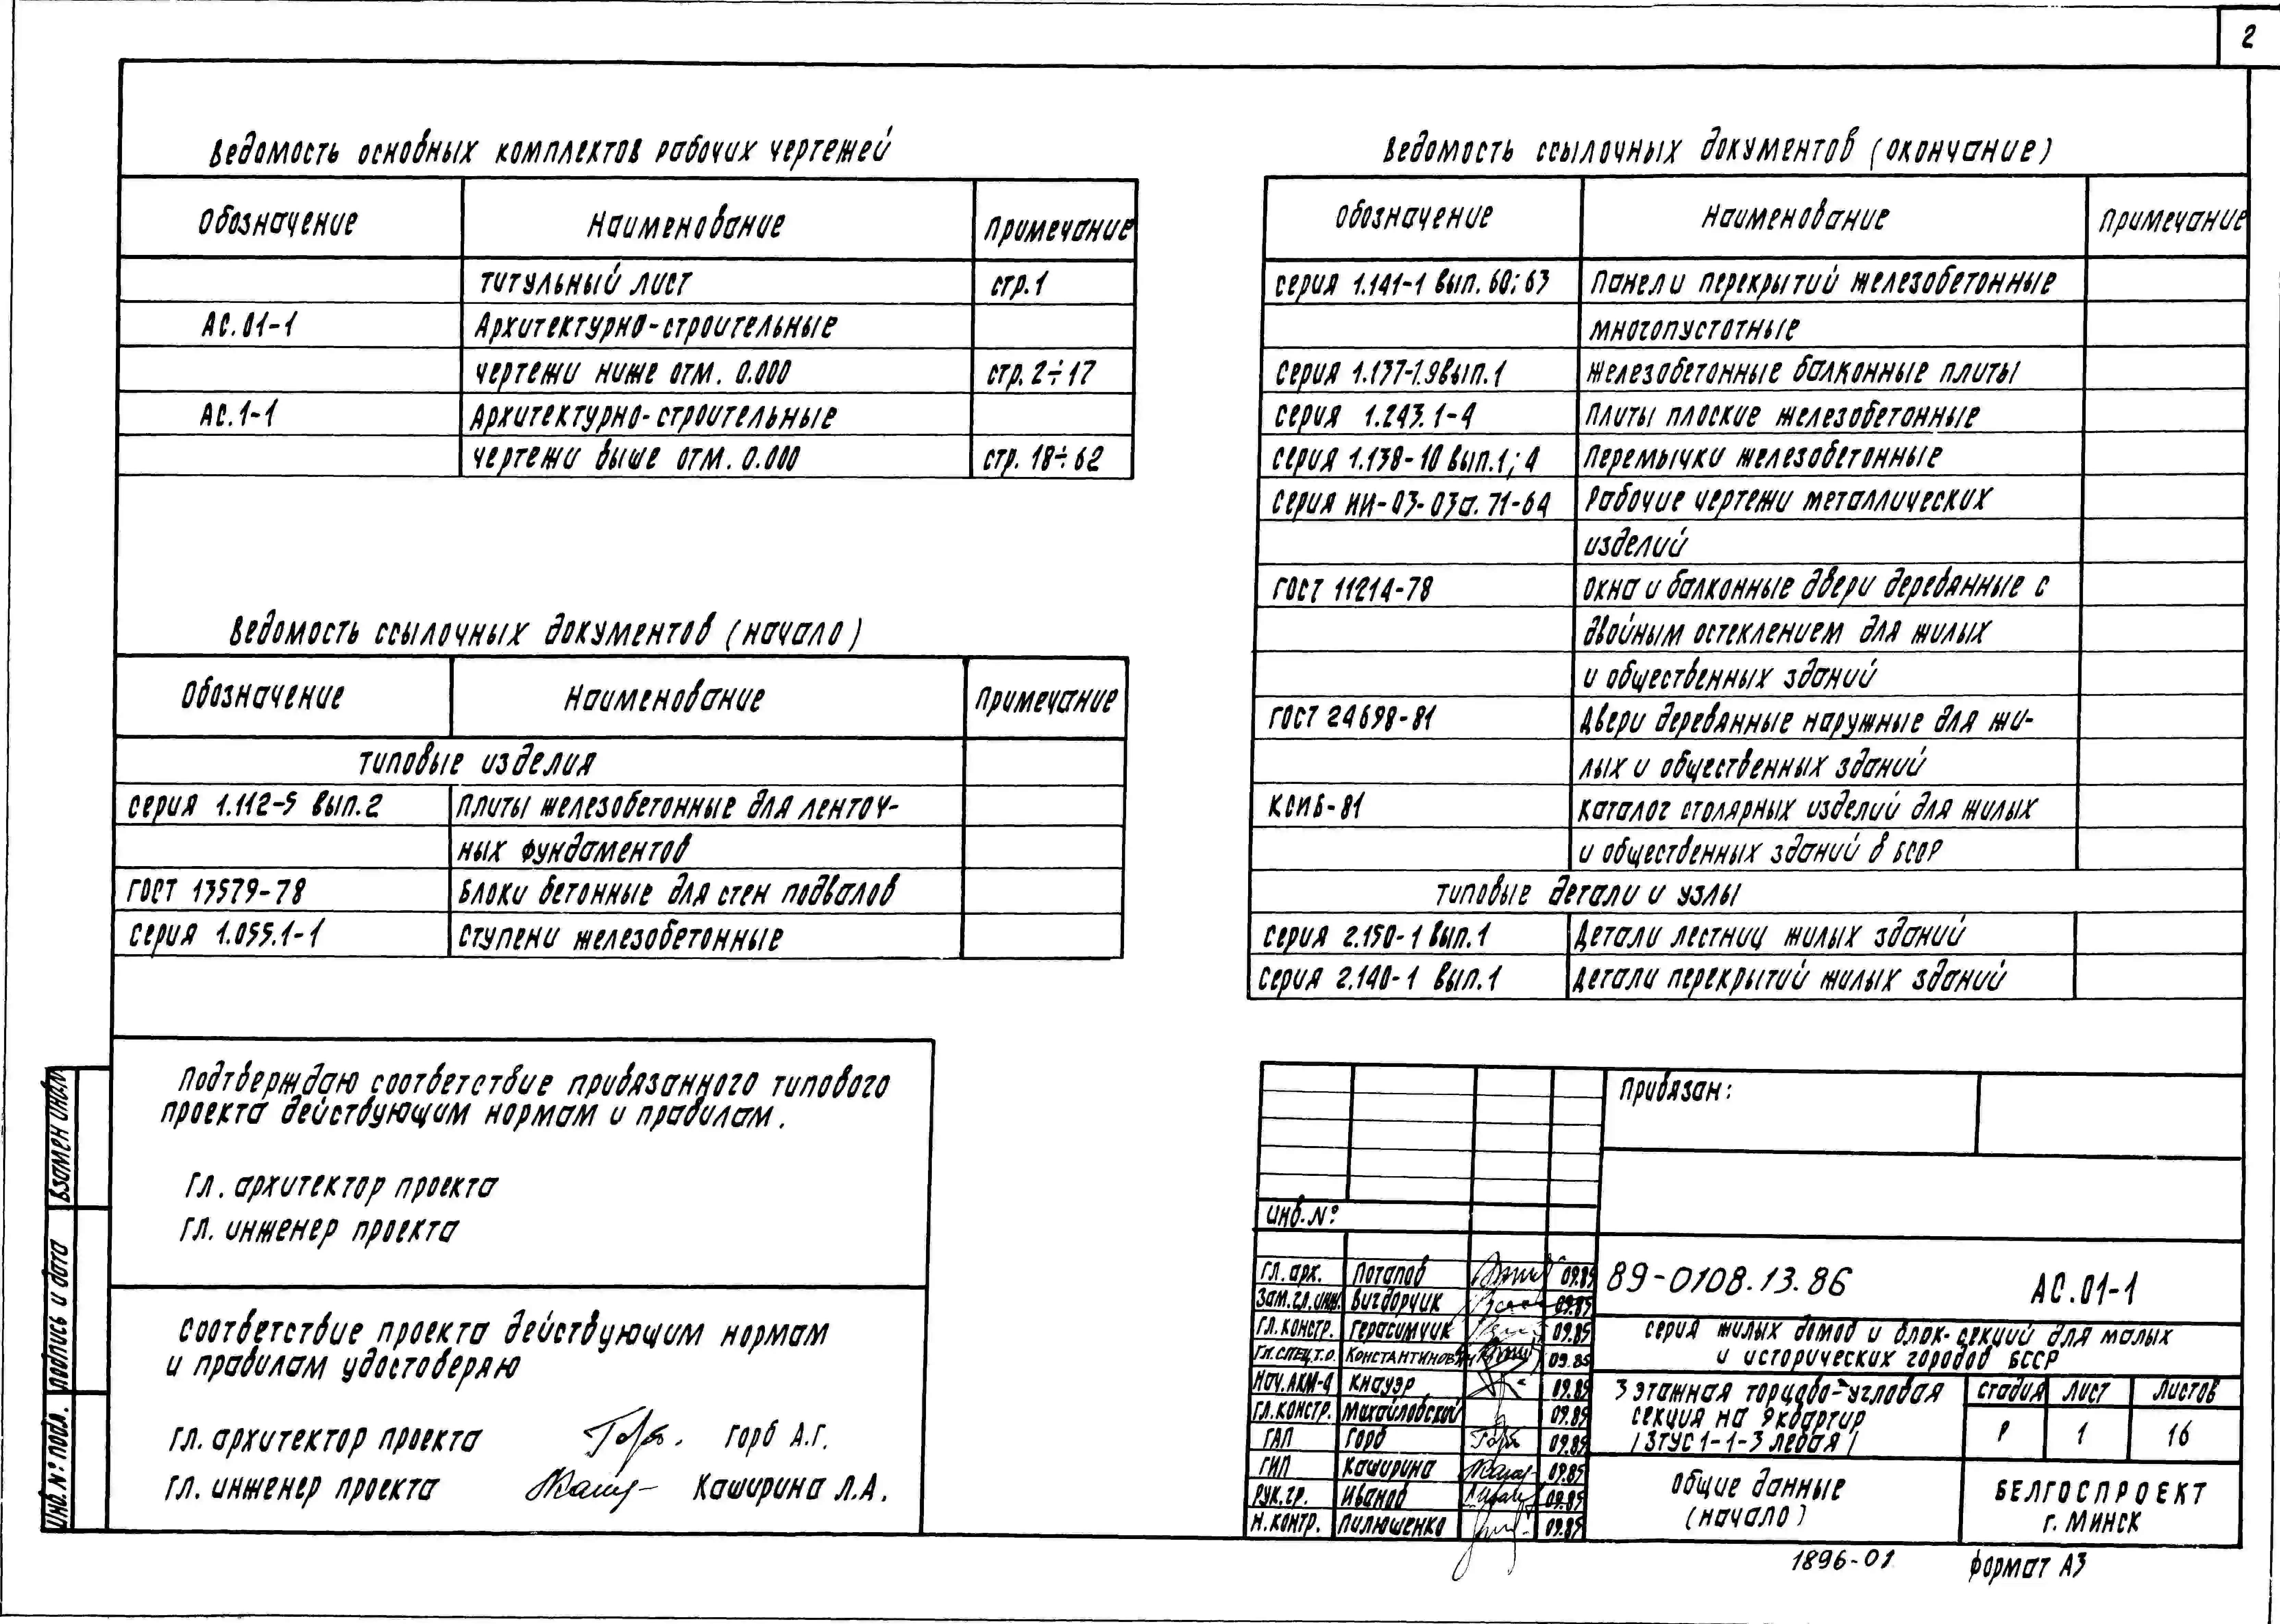 2
Ведомость основных комплектов рабочих чертежей
Обозначение Наименование Примечание
титульный лист стр.1
АС.01-1 Архитектурно-строительные
чертежи ниже отм. 0.000 стр. 2÷17
АС.1-1 Архитектурно-строительные
чертежи выше отм. 0.000 стр. 18÷62
Ведомость ссылочных документов (начало)
Обозначение Наименование Примечание
типовые изделия
серия 1.112-5 вып.2 плиты железобетонные для ленточ-
ных фундаментов
ГОСТ 13579-78 Блоки бетонные для стен подвалов
серия 1.055.1-1 ступени железобетонные
Ведомость ссылочных документов (окончание)
Обозначение Наименование Примечание
серия 1.141-1 вып. 60; 63 Панели перекрытий железобетонные
многопустотные
серия 1.137-1.9 вып.1 железобетонные балконные плиты
серия 1.243.1-4 плиты плоские железобетонные
серия 1.138-10 вып.1; 4 Перемычки железобетонные
серия ИИ-03-03а.71-64 Рабочие чертежи металлических
изделий
ГОСТ 11214-78 окна и балконные двери деревянные с
двойным остеклением для жилых
и общественных зданий
ГОСТ 24698-81 Двери деревянные наружные для жи-
лых и общественных зданий
КСИБ-81 каталог столярных изделий для жилых
и общественных зданий в БССР
типовые детали и узлы
серия 2.150-1 вып.1 Детали лестниц жилых зданий
серия 2.140-1 вып.1 Детали перекрытий жилых зданий
Подтверждаю соответствие привязанного типового
проекта действующим нормам и правилам.
Гл. архитектор проекта
гл. инженер проекта
соответствие проекта действующим нормам
и правилам удостоверяю
гл. архитектор проекта Горб А.Г.
гл. инженер проекта Каширина Л.А.
Взамен инв.№
подпись и дата
Инв. № подл.
Привязан:
инв. №
гл. арх. Потапов 09.85
Зам.гл.инж. Вигдорчик 09.85
гл. констр. Герасимчик 09.85
Гл.спец.т.о. Константинович 09.85
Нач.АКМ-4 Кнауэр 09.85
гл.констр. Михайловский 09.85
ГАП Горб 09.85
ГИП Каширина 09.85
рук.гр. Иванов 09.85
н.контр. Пилюшенко 09.85
89-0108.13.86 АС.01-1
серия жилых домов и блок-секций для малых
и исторических городов БССР
3 этажная торцово-угловая
секция на 9 квартир
/3ТУС 1-1-3 левая/
стадия лист листов
Р 1 16
общие данные
(начало)
БЕЛГОСПРОЕКТ
г. Минск
1896-01 формат А3